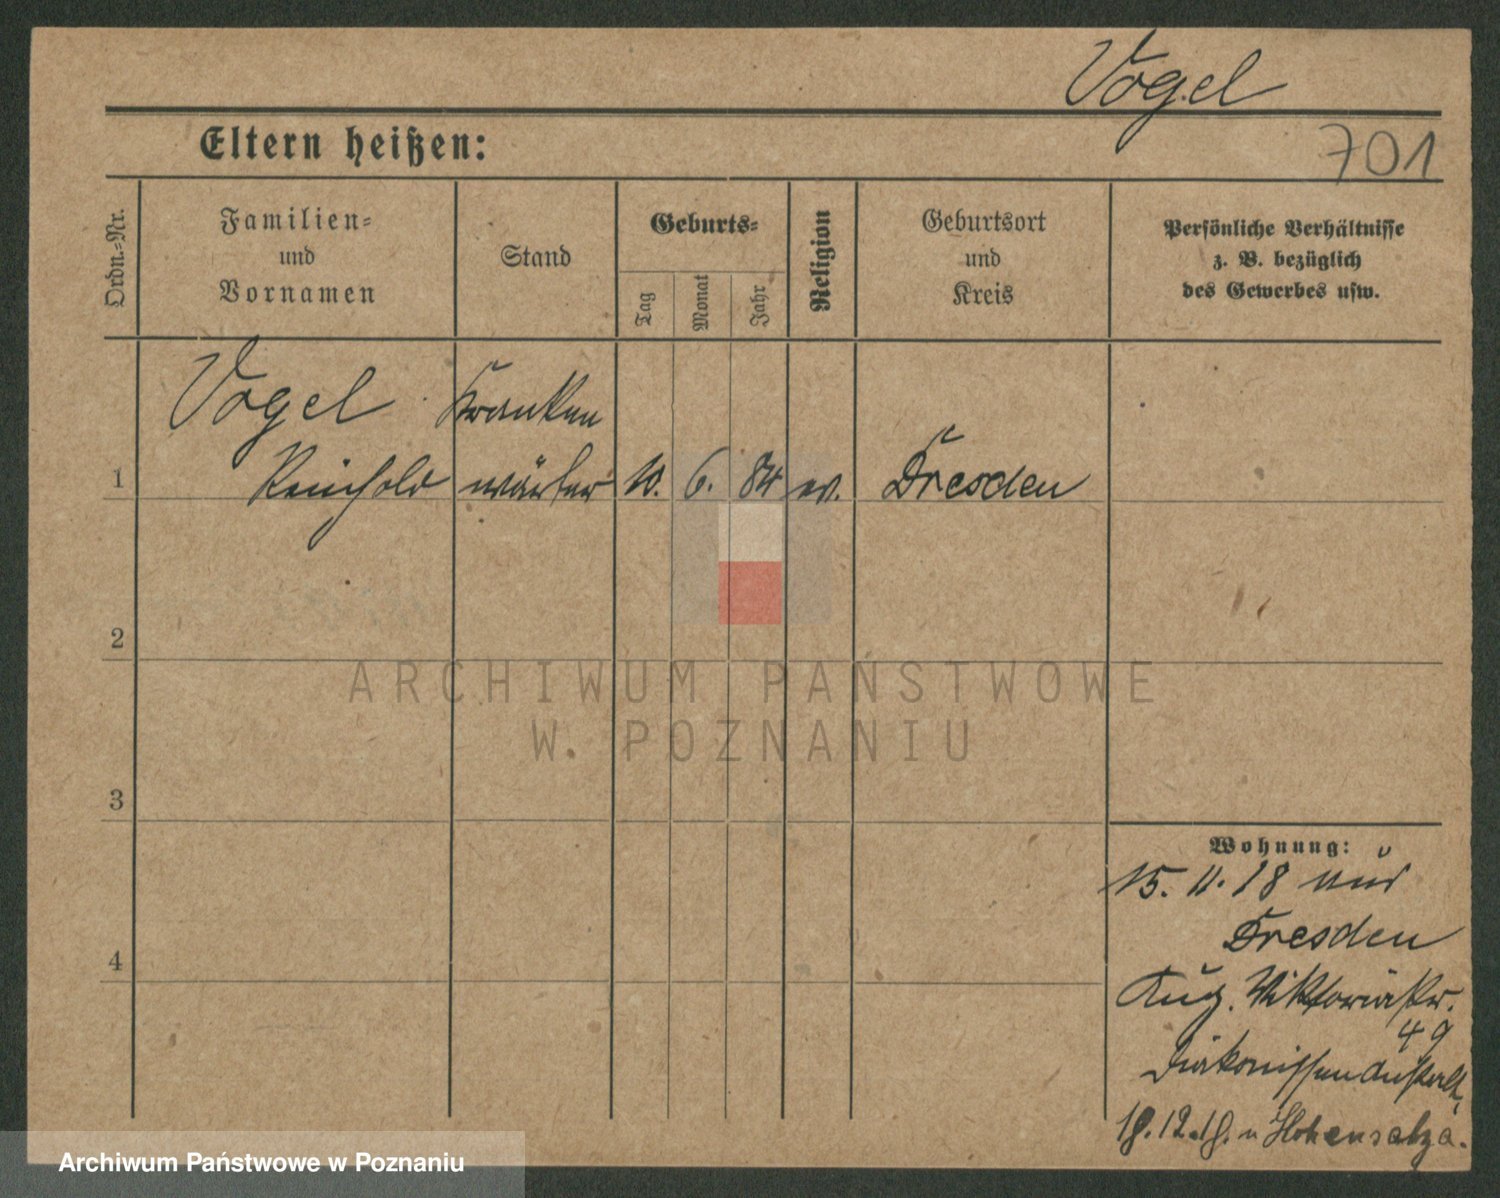 Vogel
701
Eltern heißen:
Ordn.-Nr.
Familien-
und
Vornamen
Stand
Geburts-
Tag
Monat
Jahr
Religion
Geburtsort
und
Kreis
Persönliche Verhältnisse
z. B. bezüglich
des Gewerbes usw.
Vogel Kranken
1 Reinhold wärter 10. 6. 84 ev. Dresden
2
ARCHIWUM PAŃSTWOWE
W POZNANIU
3
4
Wohnung:
15. 11. 18 aus
Dresden
Aug. Viktoriastr.
49
Diakonissenanstalt,
18. 12. 18. n Hohensalza.
Archiwum Państwowe w Poznaniu